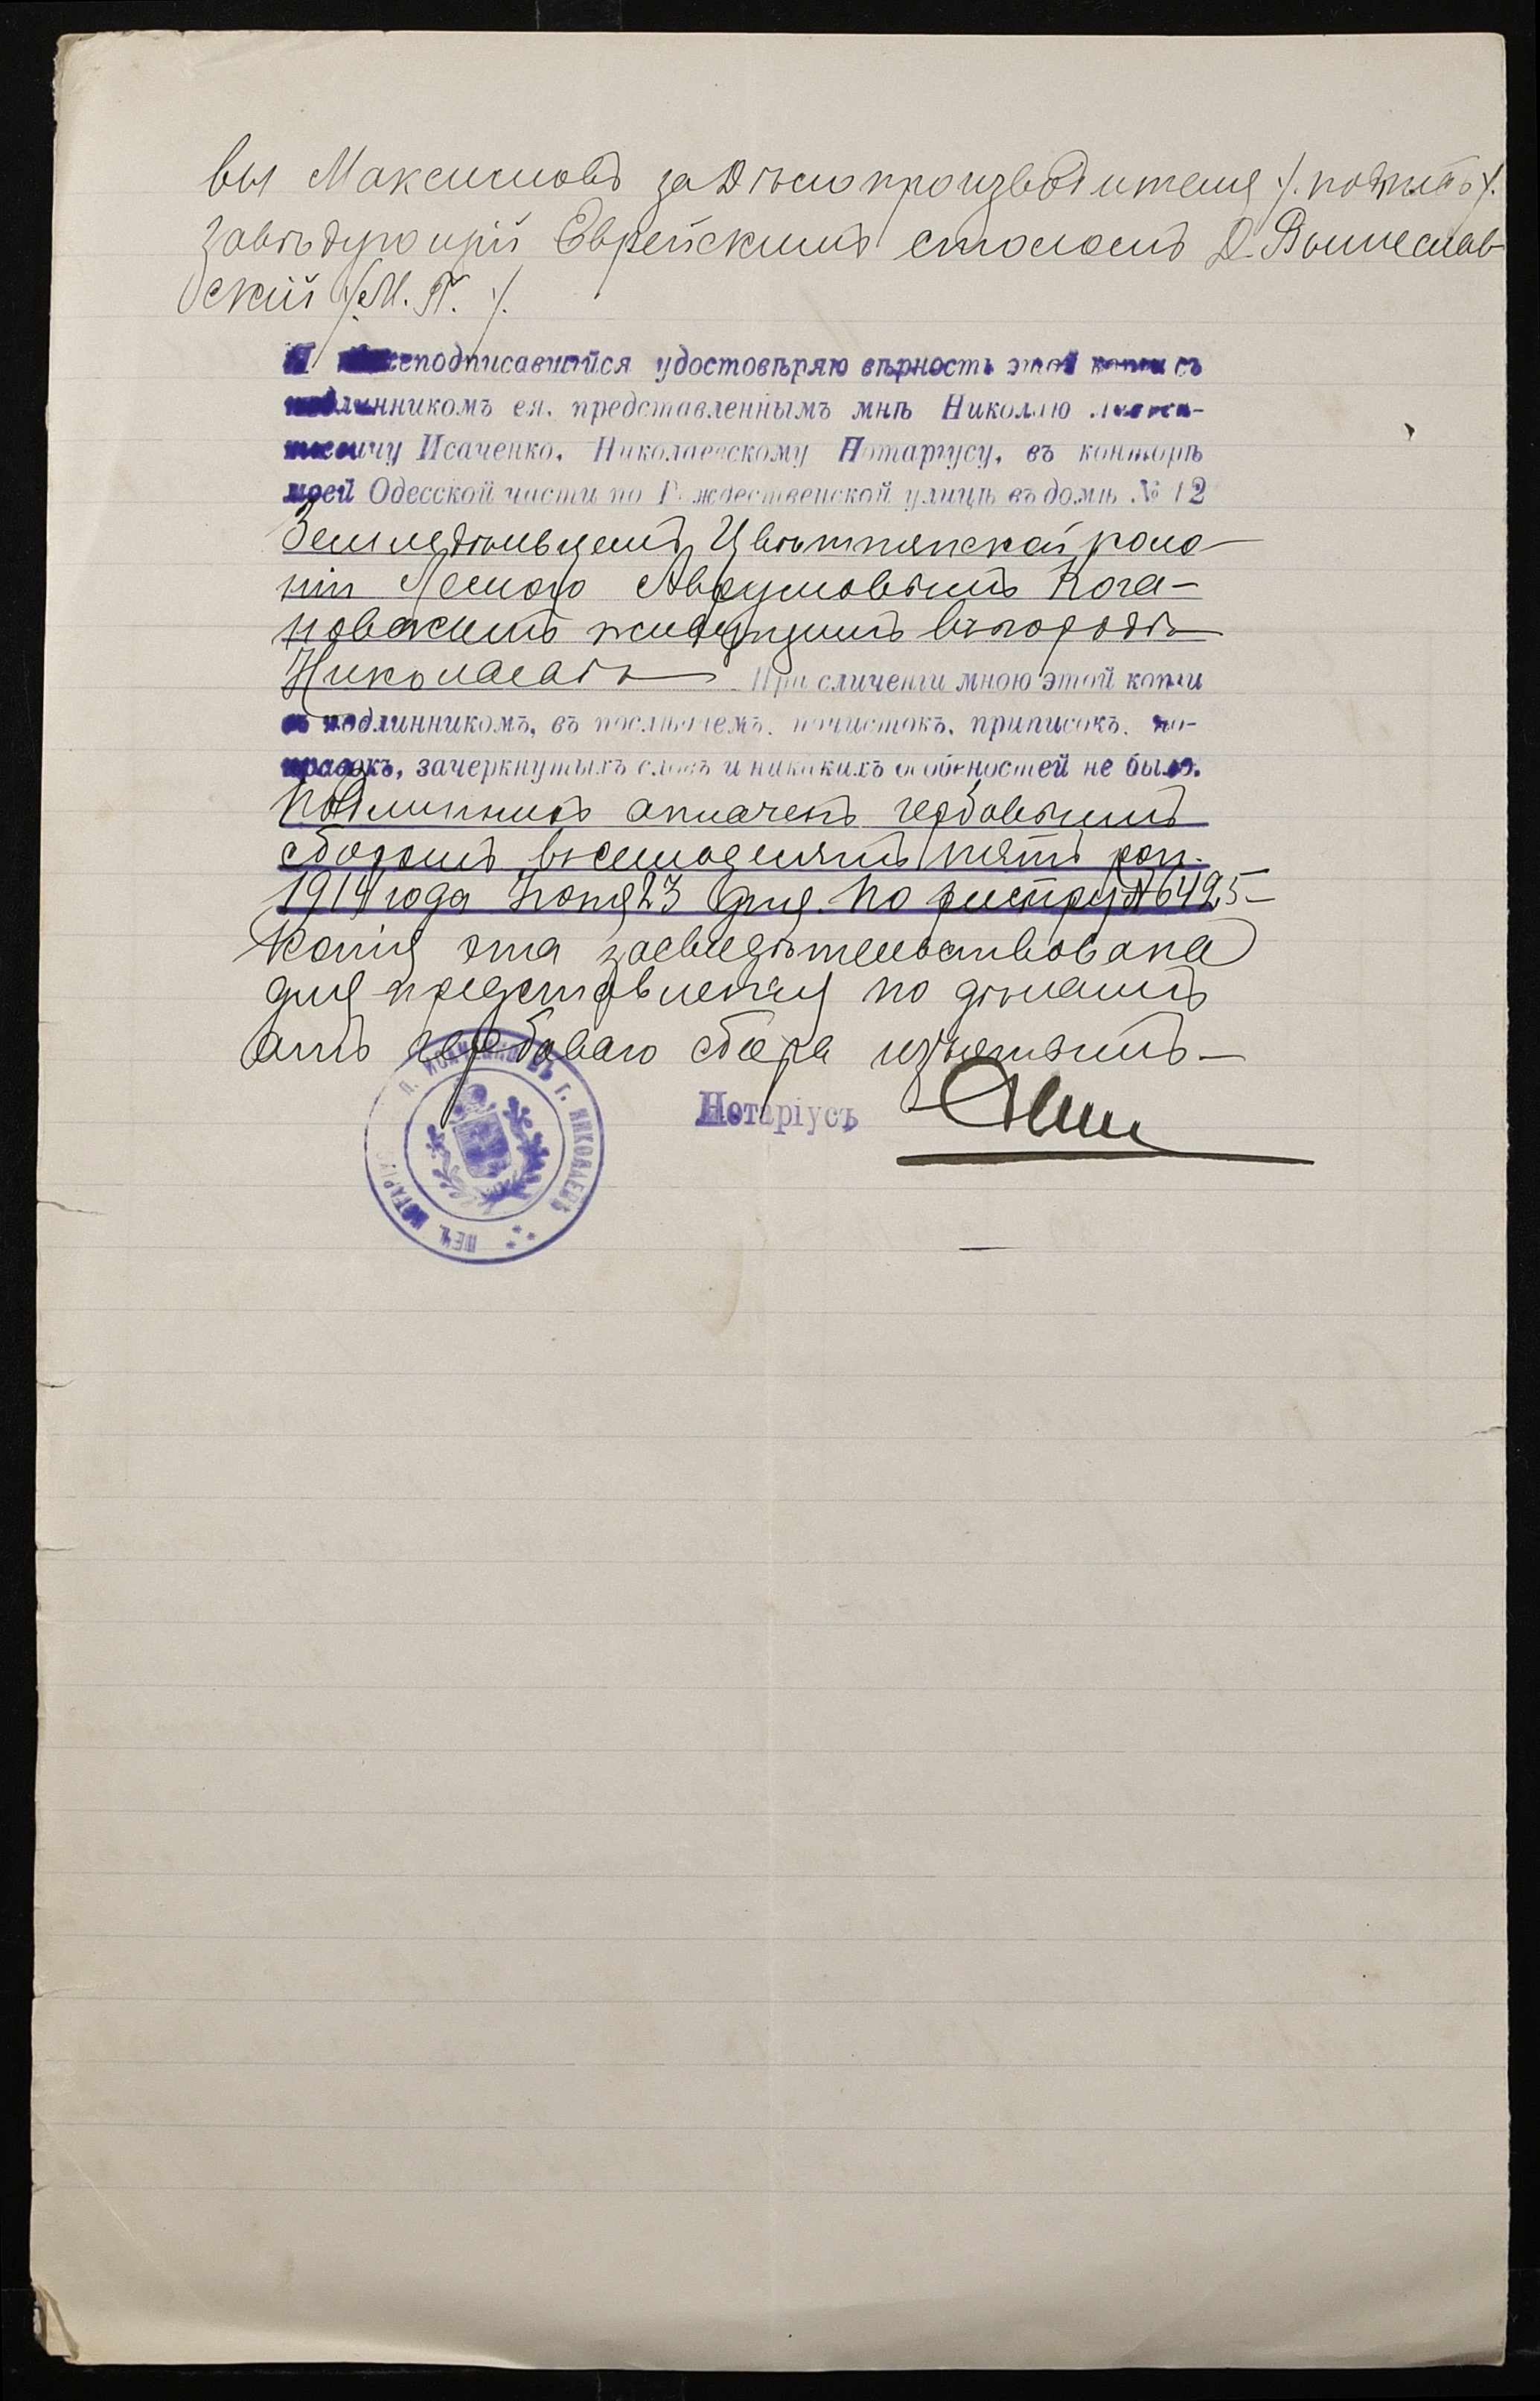 вы Максимовъ за Дѣлопроизводителя /. подпись /.
Завѣдующій Еврейскимъ столомъ Д. Вышеслав-
скій /. М. П. /.
Я нижеподписавшійся удостовѣряю вѣрность этой копіи съ
подлинникомъ ея, представленнымъ мнѣ Николаю
Исаченко, Николаевскому Нотаріусу, въ конторѣ
моей Одесской части по Рождественской улицѣ въ домѣ № 12
Земледѣльцемъ Цвѣтнянской коло-
ніи Аврумовымъ Кога-
новскимъ живущимъ въ городѣ
Николаевѣ При сличеніи мною этой копіи
съ подлинникомъ, въ послѣднемъ, почистокъ, приписокъ, по-
правокъ, зачеркнутыхъ словъ и никакихъ особенностей не было.
Подлинникъ оплаченъ гербовымъ
сборомъ въ семьдесятъ пять коп.
1914 года Іюня 23 дня. По реестру № 6495
Копія эта засвидѣтельствована
для представленія по дѣламъ
отъ гербоваго сбора изъятымъ
Нотаріусъ
ПЕЧ. НОТАРІУСА Г. НИКОЛАЕВЪ